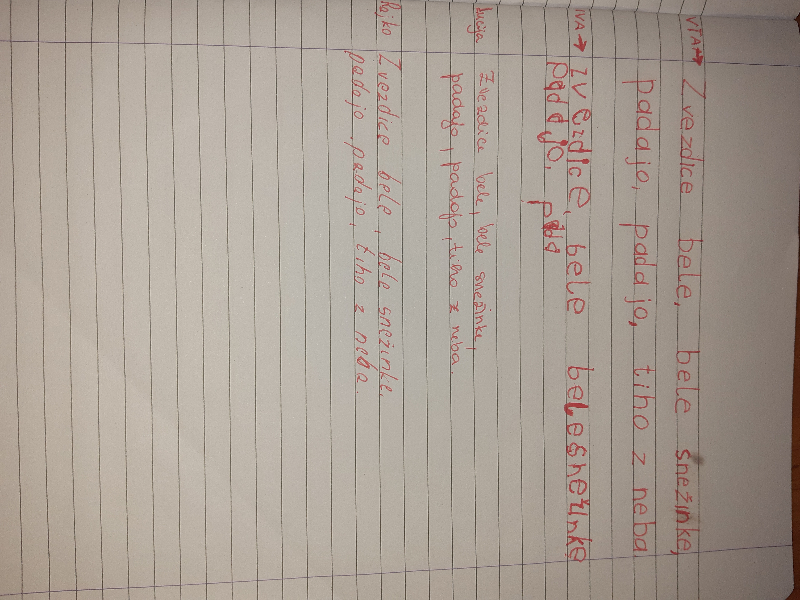 VITA → Zvezdice bele, bele snežinke,
padajo, padajo, tiho z neba
IVA → ZVEZDICE, bele beLesnežinkE
padajo, pada
Lucija Zvezdice bele, bele snežinke,
padajo, padajo, tiho z neba.
Rajko Zvezdice bele, bele snežinke,
padajo, padajo, tiho z neba.